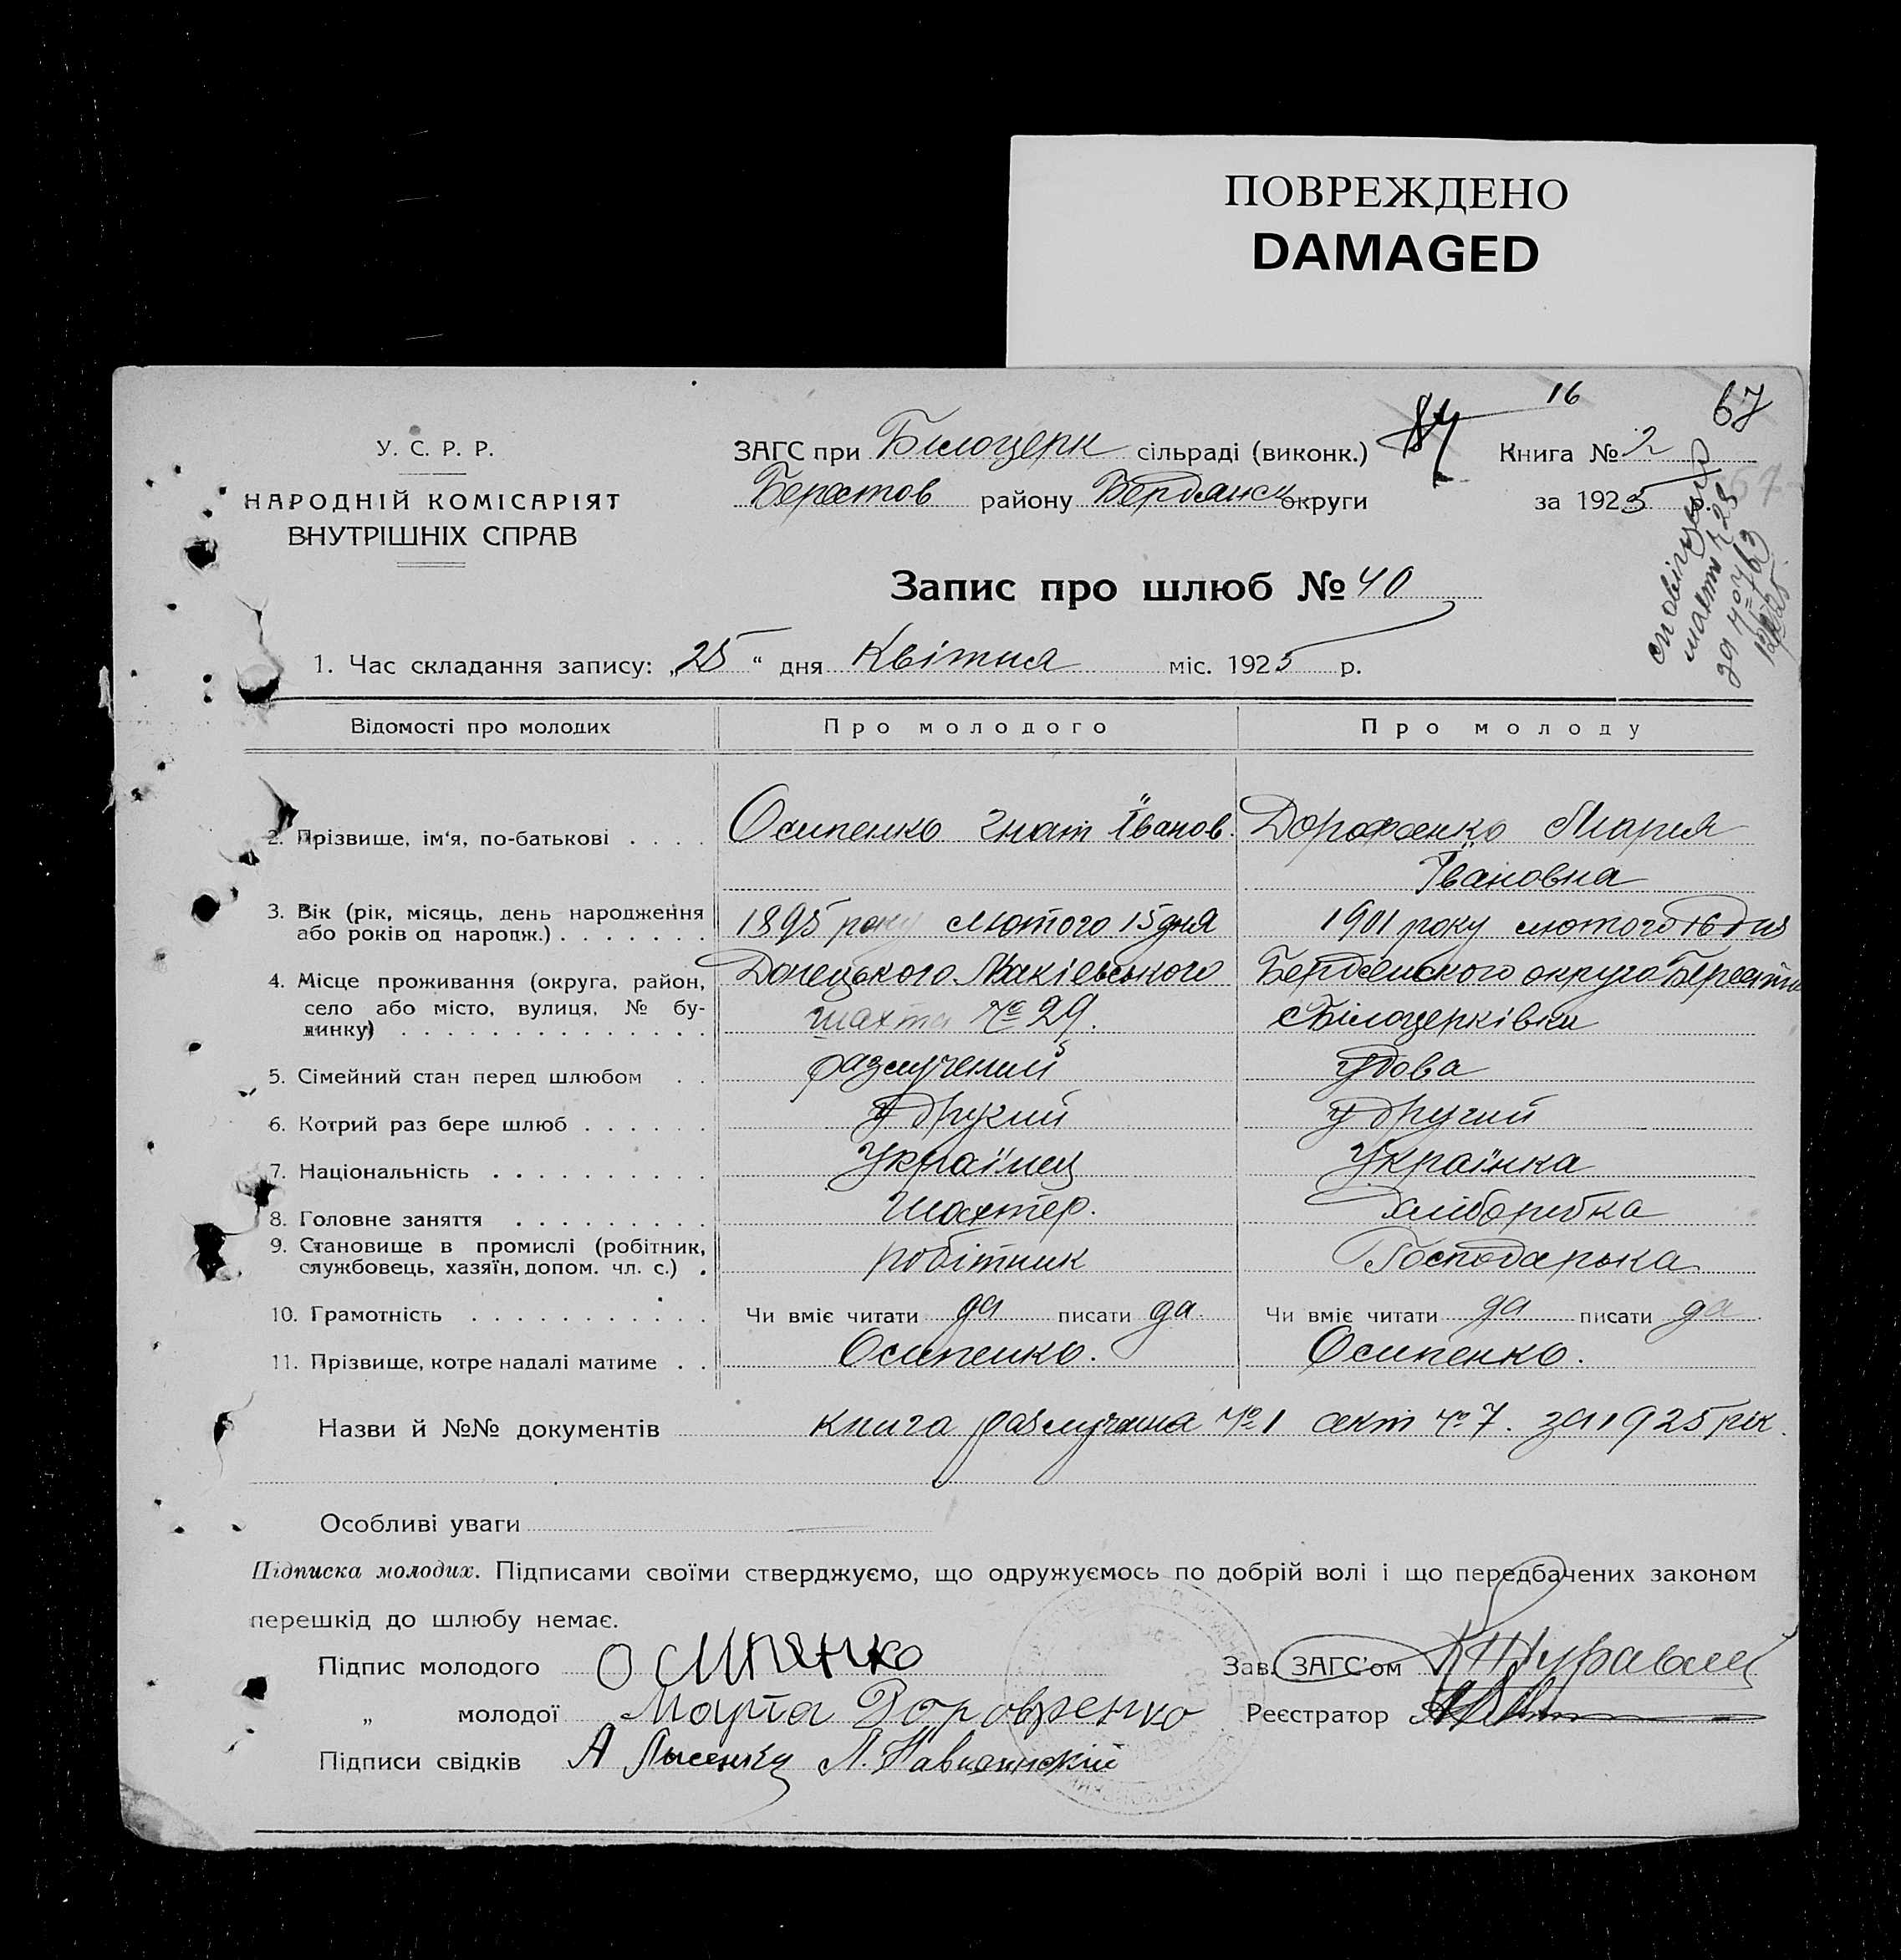 ПОВРЕЖДЕНО
DAMAGED
16
67
У. С. Р. Р.
НАРОДНІЙ КОМІСАРІЯТ
ВНУТРІШНІХ СПРАВ
ЗАГС при Білоцерк сільраді (виконк.)
Берестов району Бердянськ округи
Книга № 2
за 1925 р.
Запис про шлюб № 40
1. Час складання запису: „25“ дня Квітня міс. 1925 р.
Відомості про молодих Про молодого Про молоду
2. Прізвище, ім'я, по-батькові . . . . Осипенко Гнат Іванов. Дорофенко Мария
Івановна
3. Вік (рік, місяць, день народження
або років од народж.) . . . . . . . 1895 року лютого 15 дня 1901 року лютого 16 дня
4. Місце проживання (округа, район, Донецького Макієвського Бердянского округа Берестов
село або місто, вулиця, № бу-
динку) . . . . . . . . . . . . . . шахта № 29. с Білоцерківки
5. Сімейний стан перед шлюбом . . разлучений удова
6. Котрий раз бере шлюб . . . . . . у друкий у другий
7. Національність . . . . . . . . . . Українец Українка
8. Головне заняття . . . . . . . . . Шахтер. хліборобка
9. Становище в промислі (робітник,
службовець, хазяїн, допом. чл. с.) . робітник Господарька
10. Грамотність . . . . . . . . . . . Чи вміє читати да писати да. Чи вміє читати да писати да
11. Прізвище, котре надалі матиме . . Осипенко. Осипенко.
Назви й №№ документів книга разлучення № 1 акт № 7. за 1925 рік.
Особливі уваги
Підписка молодих. Підписами своїми стверджуємо, що одружуємось по добрій волі і що передбачених законом
перешкід до шлюбу немає.
Підпис молодого Осипянко Зав. ЗАГС'ом Журавль
„ молодої Марта Дорофенко Реєстратор
Підписи свідків А Лысенко Л.